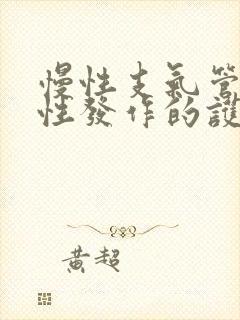 慢性支氣管
性發作的護
黃超